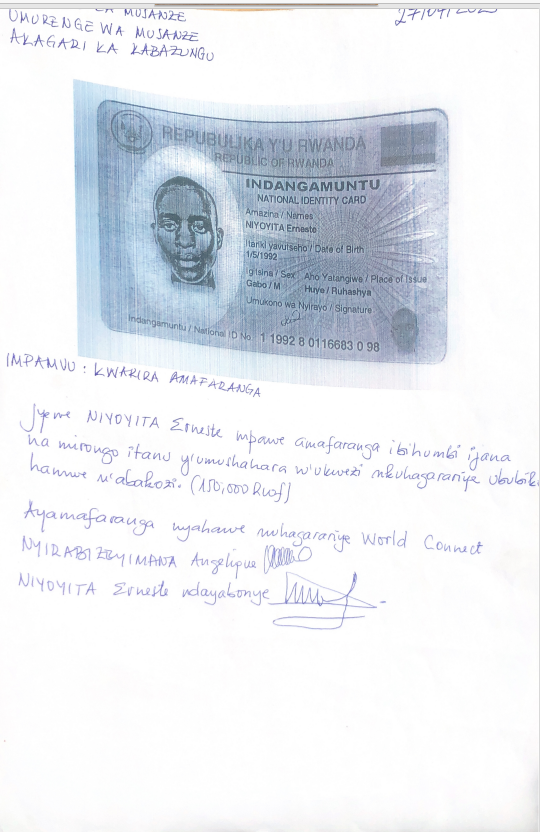 MUSANZE
UMURENGE WA MUSANZE
AKAGARI KA KABAZUNGU
REPUBULIKA Y'U RWANDA
REPUBLIC OF RWANDA
INDANGAMUNTU
NATIONAL IDENTITY CARD
Amazina / Names
NIYOYITA Erneste
Itariki yavutseho / Date of Birth
1/5/1992
Igitsina / Sex Aho Yatangiwe / Place of Issue
Gabo / M Huye / Ruhashya
Umukono wa Nyirayo / Signature
Indangamuntu / National ID No. 1 1992 8 0116683 0 98
IMPAMVU : KWAKIRA AMAFARANGA
Jyewe NIYOYITA Erneste mpawe amafaranga ibihumbi ijana
na mirongo itanu y'umushahara w'ukwezi nkuhagarariye ububiko
hamwe n'abakozi. (150,000 Rwf)
Ayamafaranga nyahawe nuhagarariye World Connect
NYIRABIZEYIMANA Angelique
NIYOYITA Erneste ndayabonye